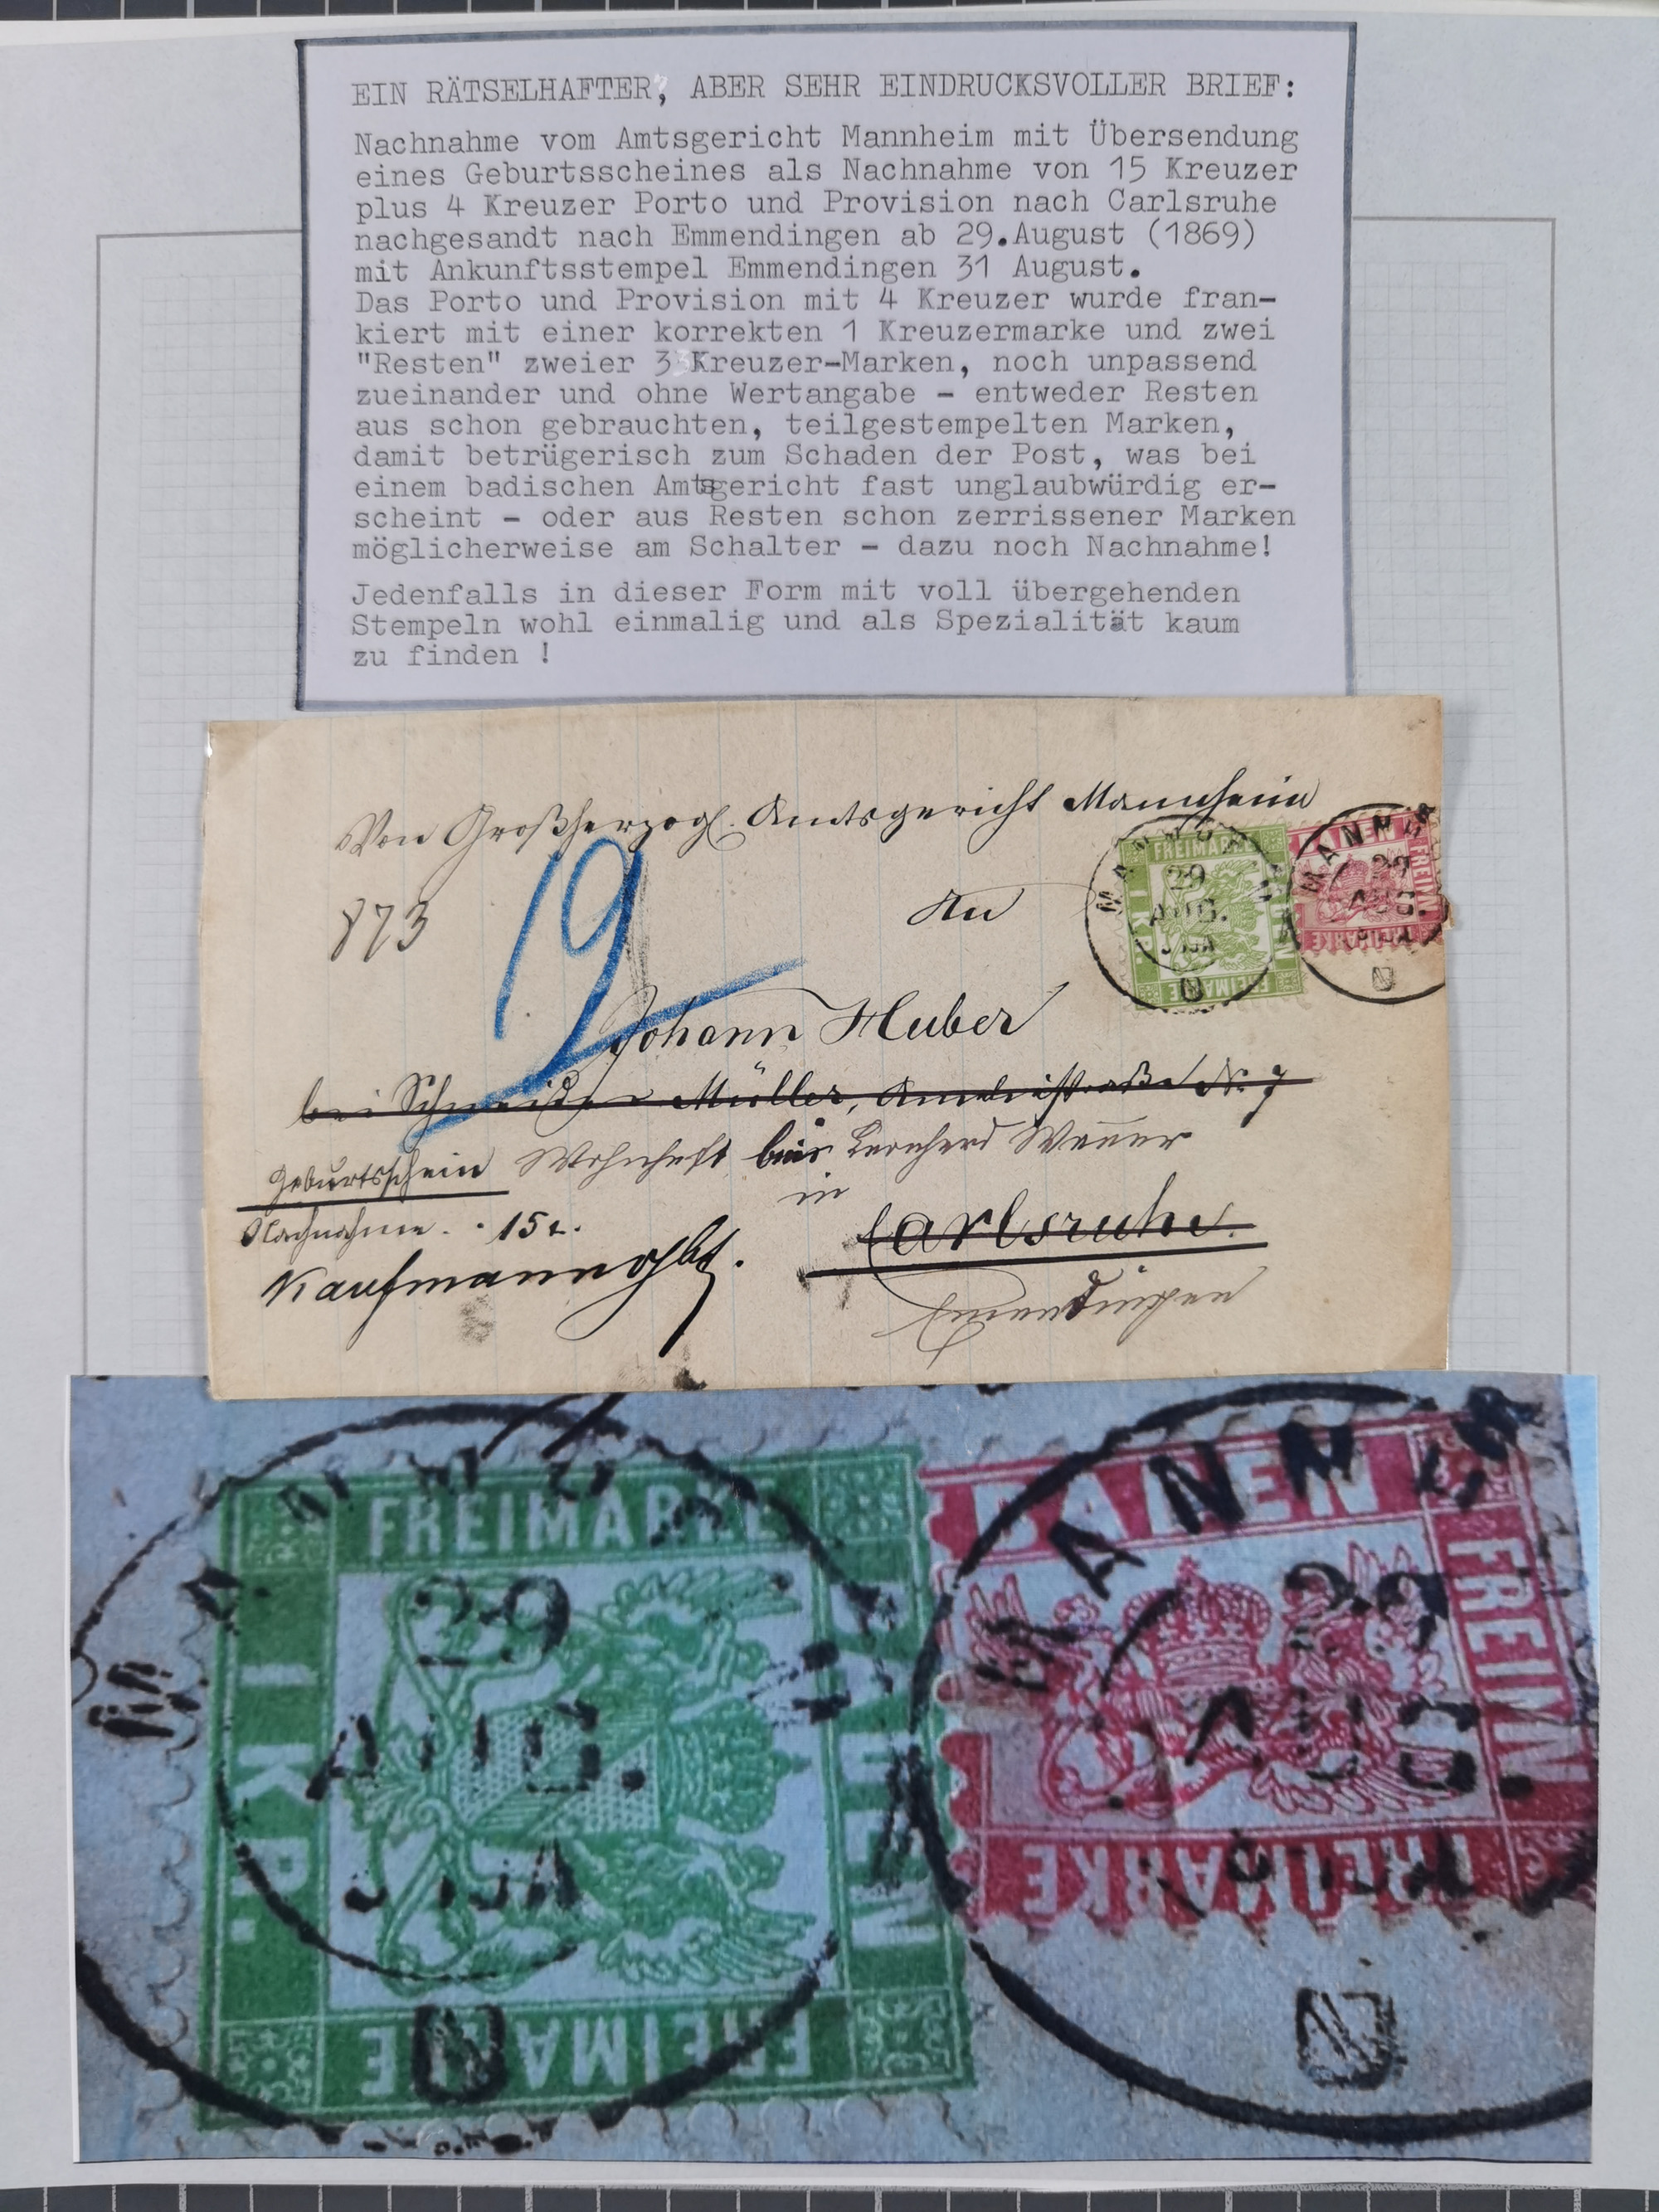 EIN RÄTSELHAFTER, ABER SEHR EINDRUCKSVOLLER BRIEF:
Nachnahme vom Amtsgericht Mannheim mit Übersendung
eines Geburtsscheines als Nachnahme von 15 Kreuzer
plus 4 Kreuzer Porto und Provision nach Carlsruhe
nachgesandt nach Emmendingen ab 29.August (1869)
mit Ankunftsstempel Emmendingen 31 August.
Das Porto und Provision mit 4 Kreuzer wurde fran-
kiert mit einer korrekten 1 Kreuzermarke und zwei
"Resten" zweier 3 Kreuzer-Marken, noch unpassend
zueinander und ohne Wertangabe - entweder Resten
aus schon gebrauchten, teilgestempelten Marken,
damit betrügerisch zum Schaden der Post, was bei
einem badischen Amtsgericht fast unglaubwürdig er-
scheint - oder aus Resten schon zerrissener Marken
möglicherweise am Schalter - dazu noch Nachnahme!
Jedenfalls in dieser Form mit voll übergehenden
Stempeln wohl einmalig und als Spezialität kaum
zu finden !
Von Großherzogl. Amtsgericht Mannheim
873
19
An
Johann Huber
bei Schneider Müller, Amalienstraße N. 7
Geburtsschein
in
Nachnahme. 15
Carlsruhe.
Kaufmann
Emendingen
FREIMARKE
1 KR.
BADEN
FREIMARKE
29
AUG.
BADEN
FREIM
FREIMARKE
MANNH
29
AUG.